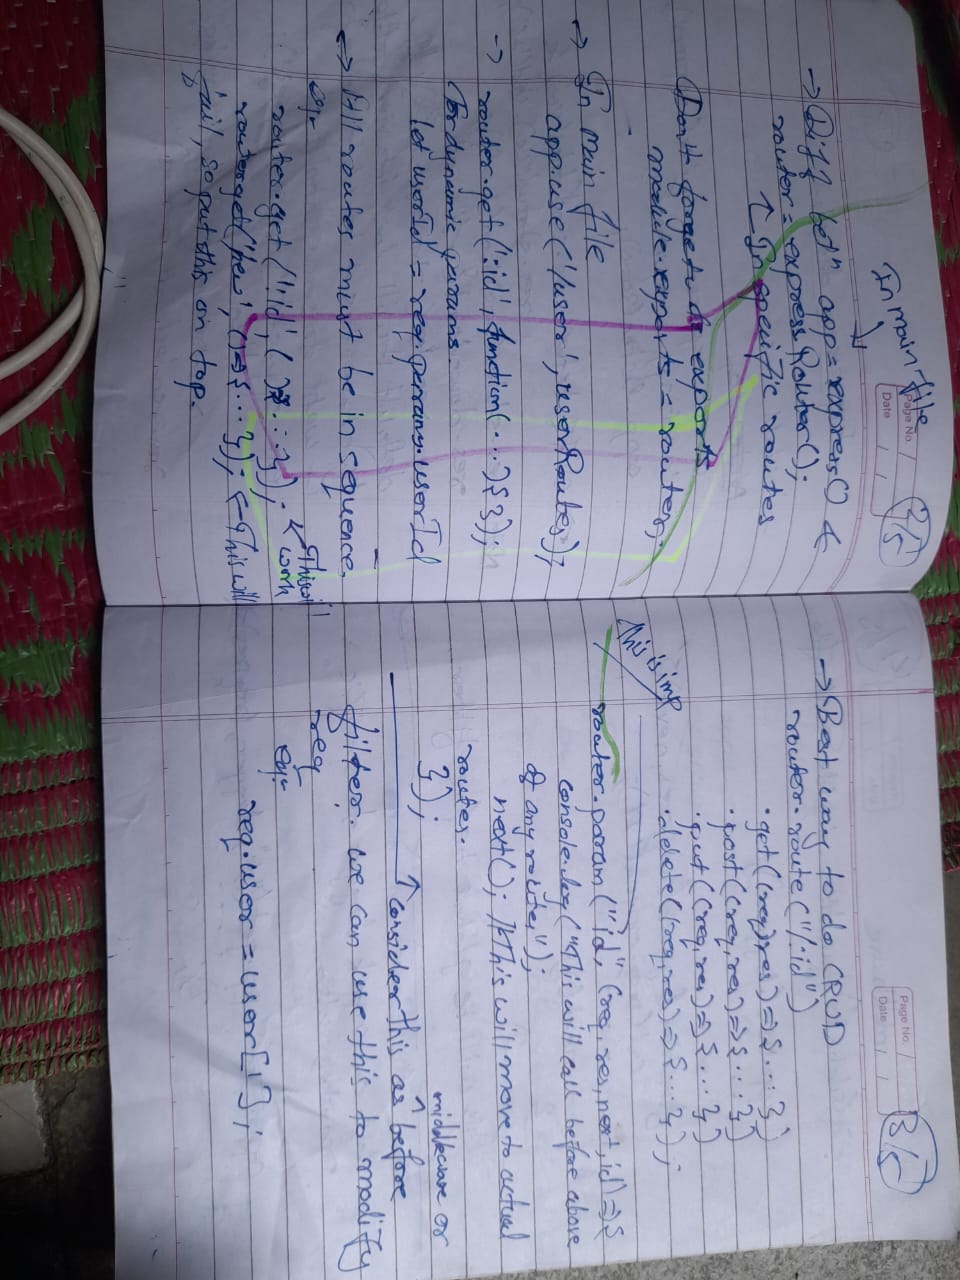 In main file
Page No.
Date / /
2/5
→ Diff betn app = express() &
router = express.Router();
↑ In specific routes
Don't forget to exports
module.exports = router;
→ In main file
app.use('/user', userRoutes);
→ router.get(':id', function(...){});
For dynamic params
let userId = req.params.userId
→ All routes must be in sequence.
eg:-
router.get('/:id', ( )...}); ← This will work
router.get('/new', ()=>{...}); ← This will
fail, so put this on top.
Page No.
Date / /
3/5
→ Best way to do CRUD
router.route("/:id")
.get((req,res)=>{...})
.post((req,res)=>{...})
.put((req,res)=>{...})
.delete((req,res)=>{...});
This is imp
router.param("id", (req,res,next,id)=>{
console.log("This will call before above
of any route");
next(); // This will move to actual
routes.
});
↑ consider this as before middleware or
filter. we can use this to modify
req
eg:-
req.user = user[1];